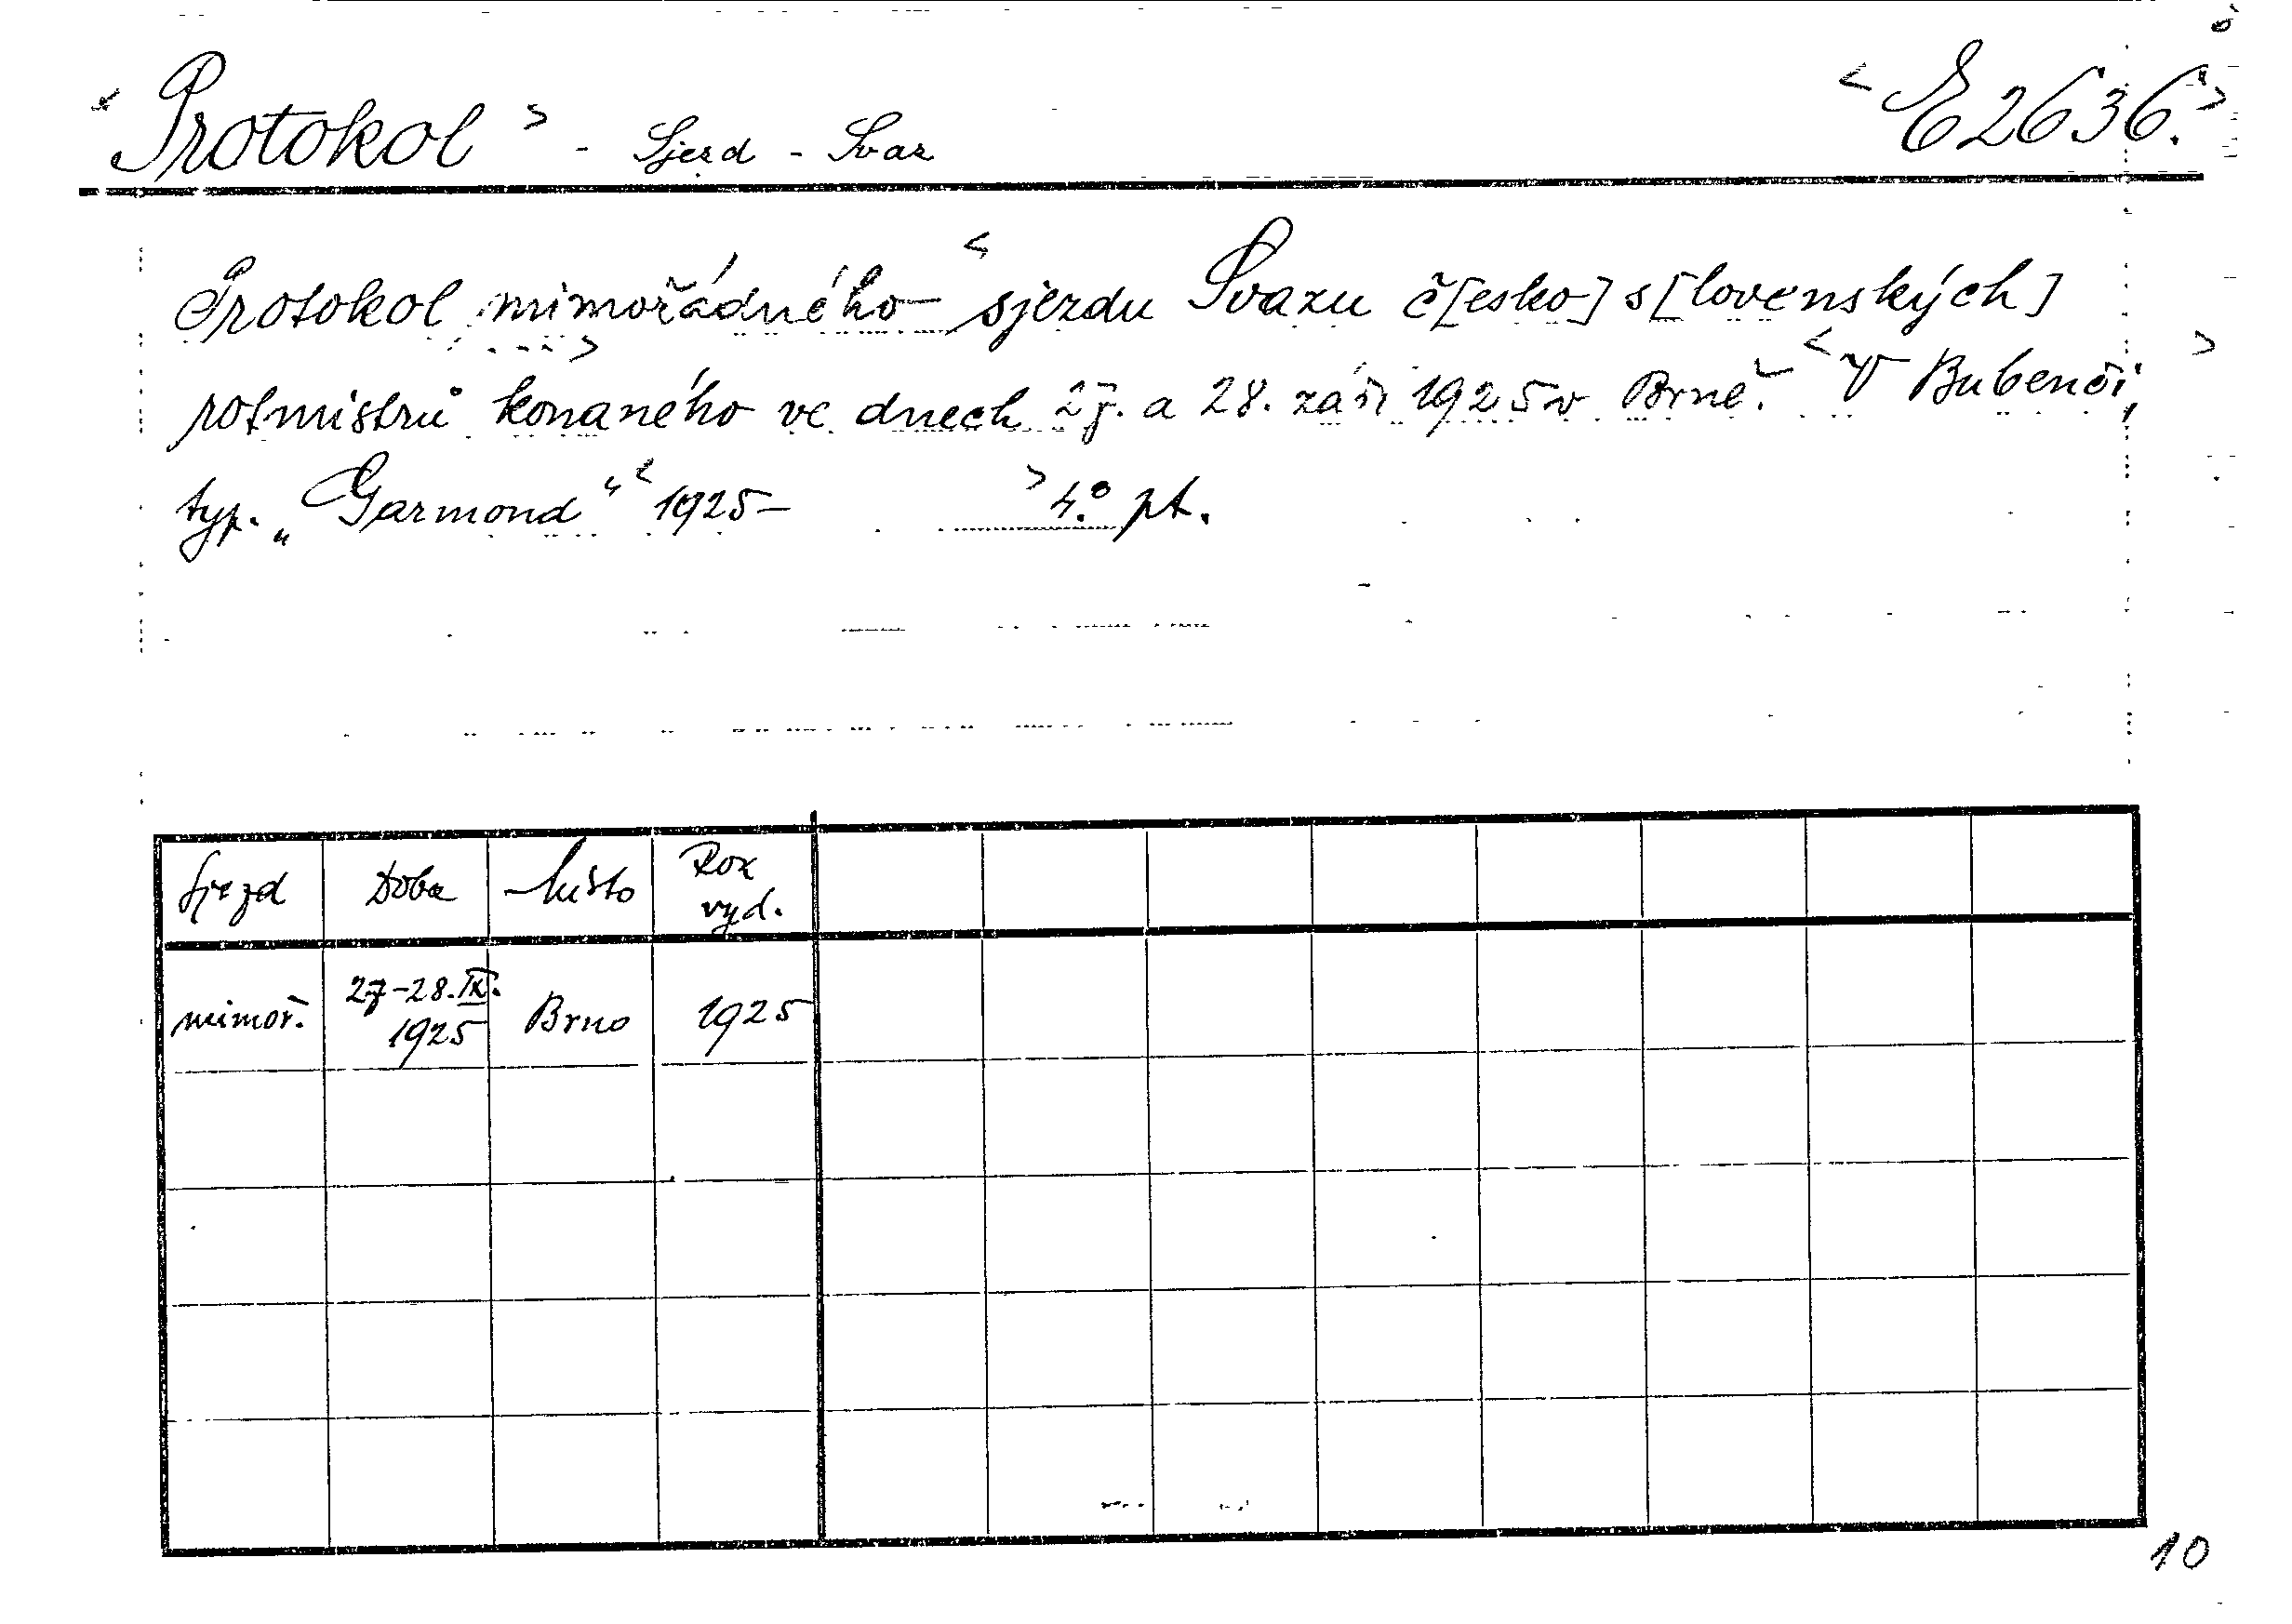 < Protokol > - Sjezd - Svaz < E 2636. >
Protokol mimořádného < sjezdu Svazu č[esko] s[lovenských]
rotmistrů > konaného ve dnech 27. a 28. září 1925 v Brně. < V Bubenči, >
typ. „Garmond“ < 1925- > 4.° pt.
Sjezd Doba Místo Rok vyd.
mimoř. 27-28.IX. 1925 Brno 1925
10